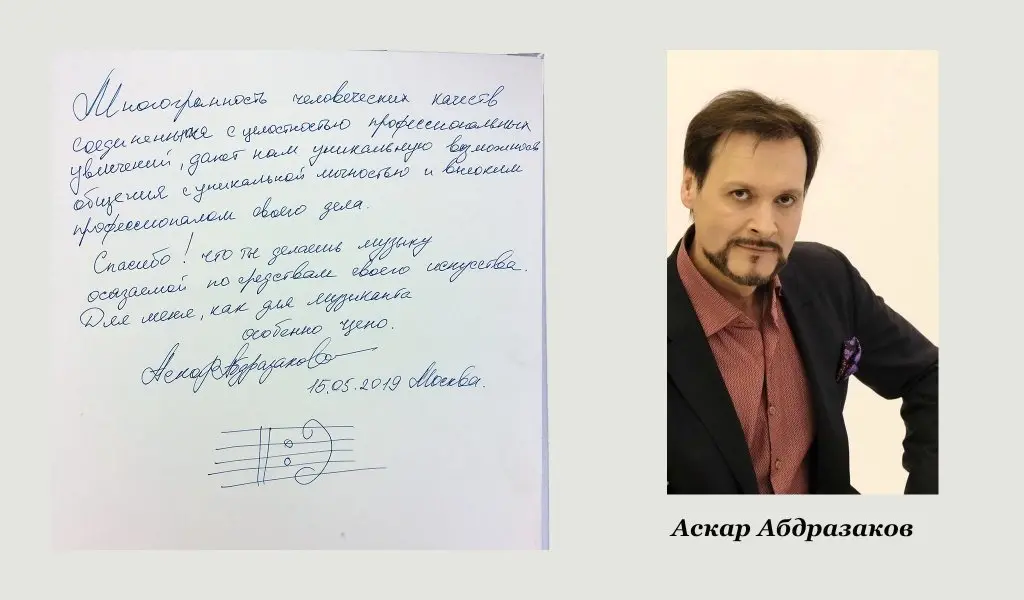 Многогранность человеческих качеств
соединенная с целостностью профессиональных
увлечений, дают нам уникальную возможность
общения с уникальной личностью и высоким
профессионалом своего дела.
Спасибо! что ты делаешь музыку
осязаемой по средствам своего искусства.
Для меня, как для музиканта
особенно цено.
Аскар Абдразаков
15.05.2019 Москва.
Аскар Абдразаков